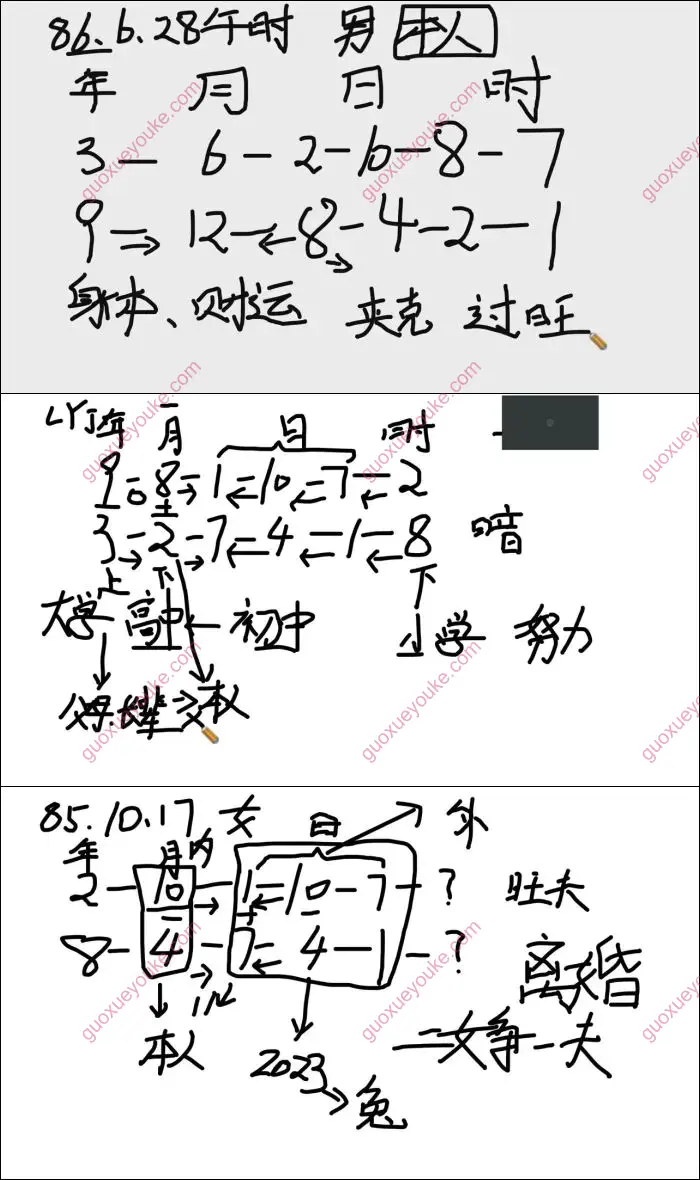 86.6.28午时 男 本人
年 月 日 时
3— 6—2—10—8—7
9→12—←8→4—2—1
身体、财运 夹克 过旺
LYJ年 月 日 时
9=8→1←10←7←2
3→2→7←4←1←8 暗
上 下 下
大学 高中←初中 小学 努力
父母 本人
85.10.17 女 日 外
年 月内
2—10→1←10—7—? 旺夫
8—4→7←4—1—?
离婚
本人 2023 二女争一夫
兔
guoxueyouke.com